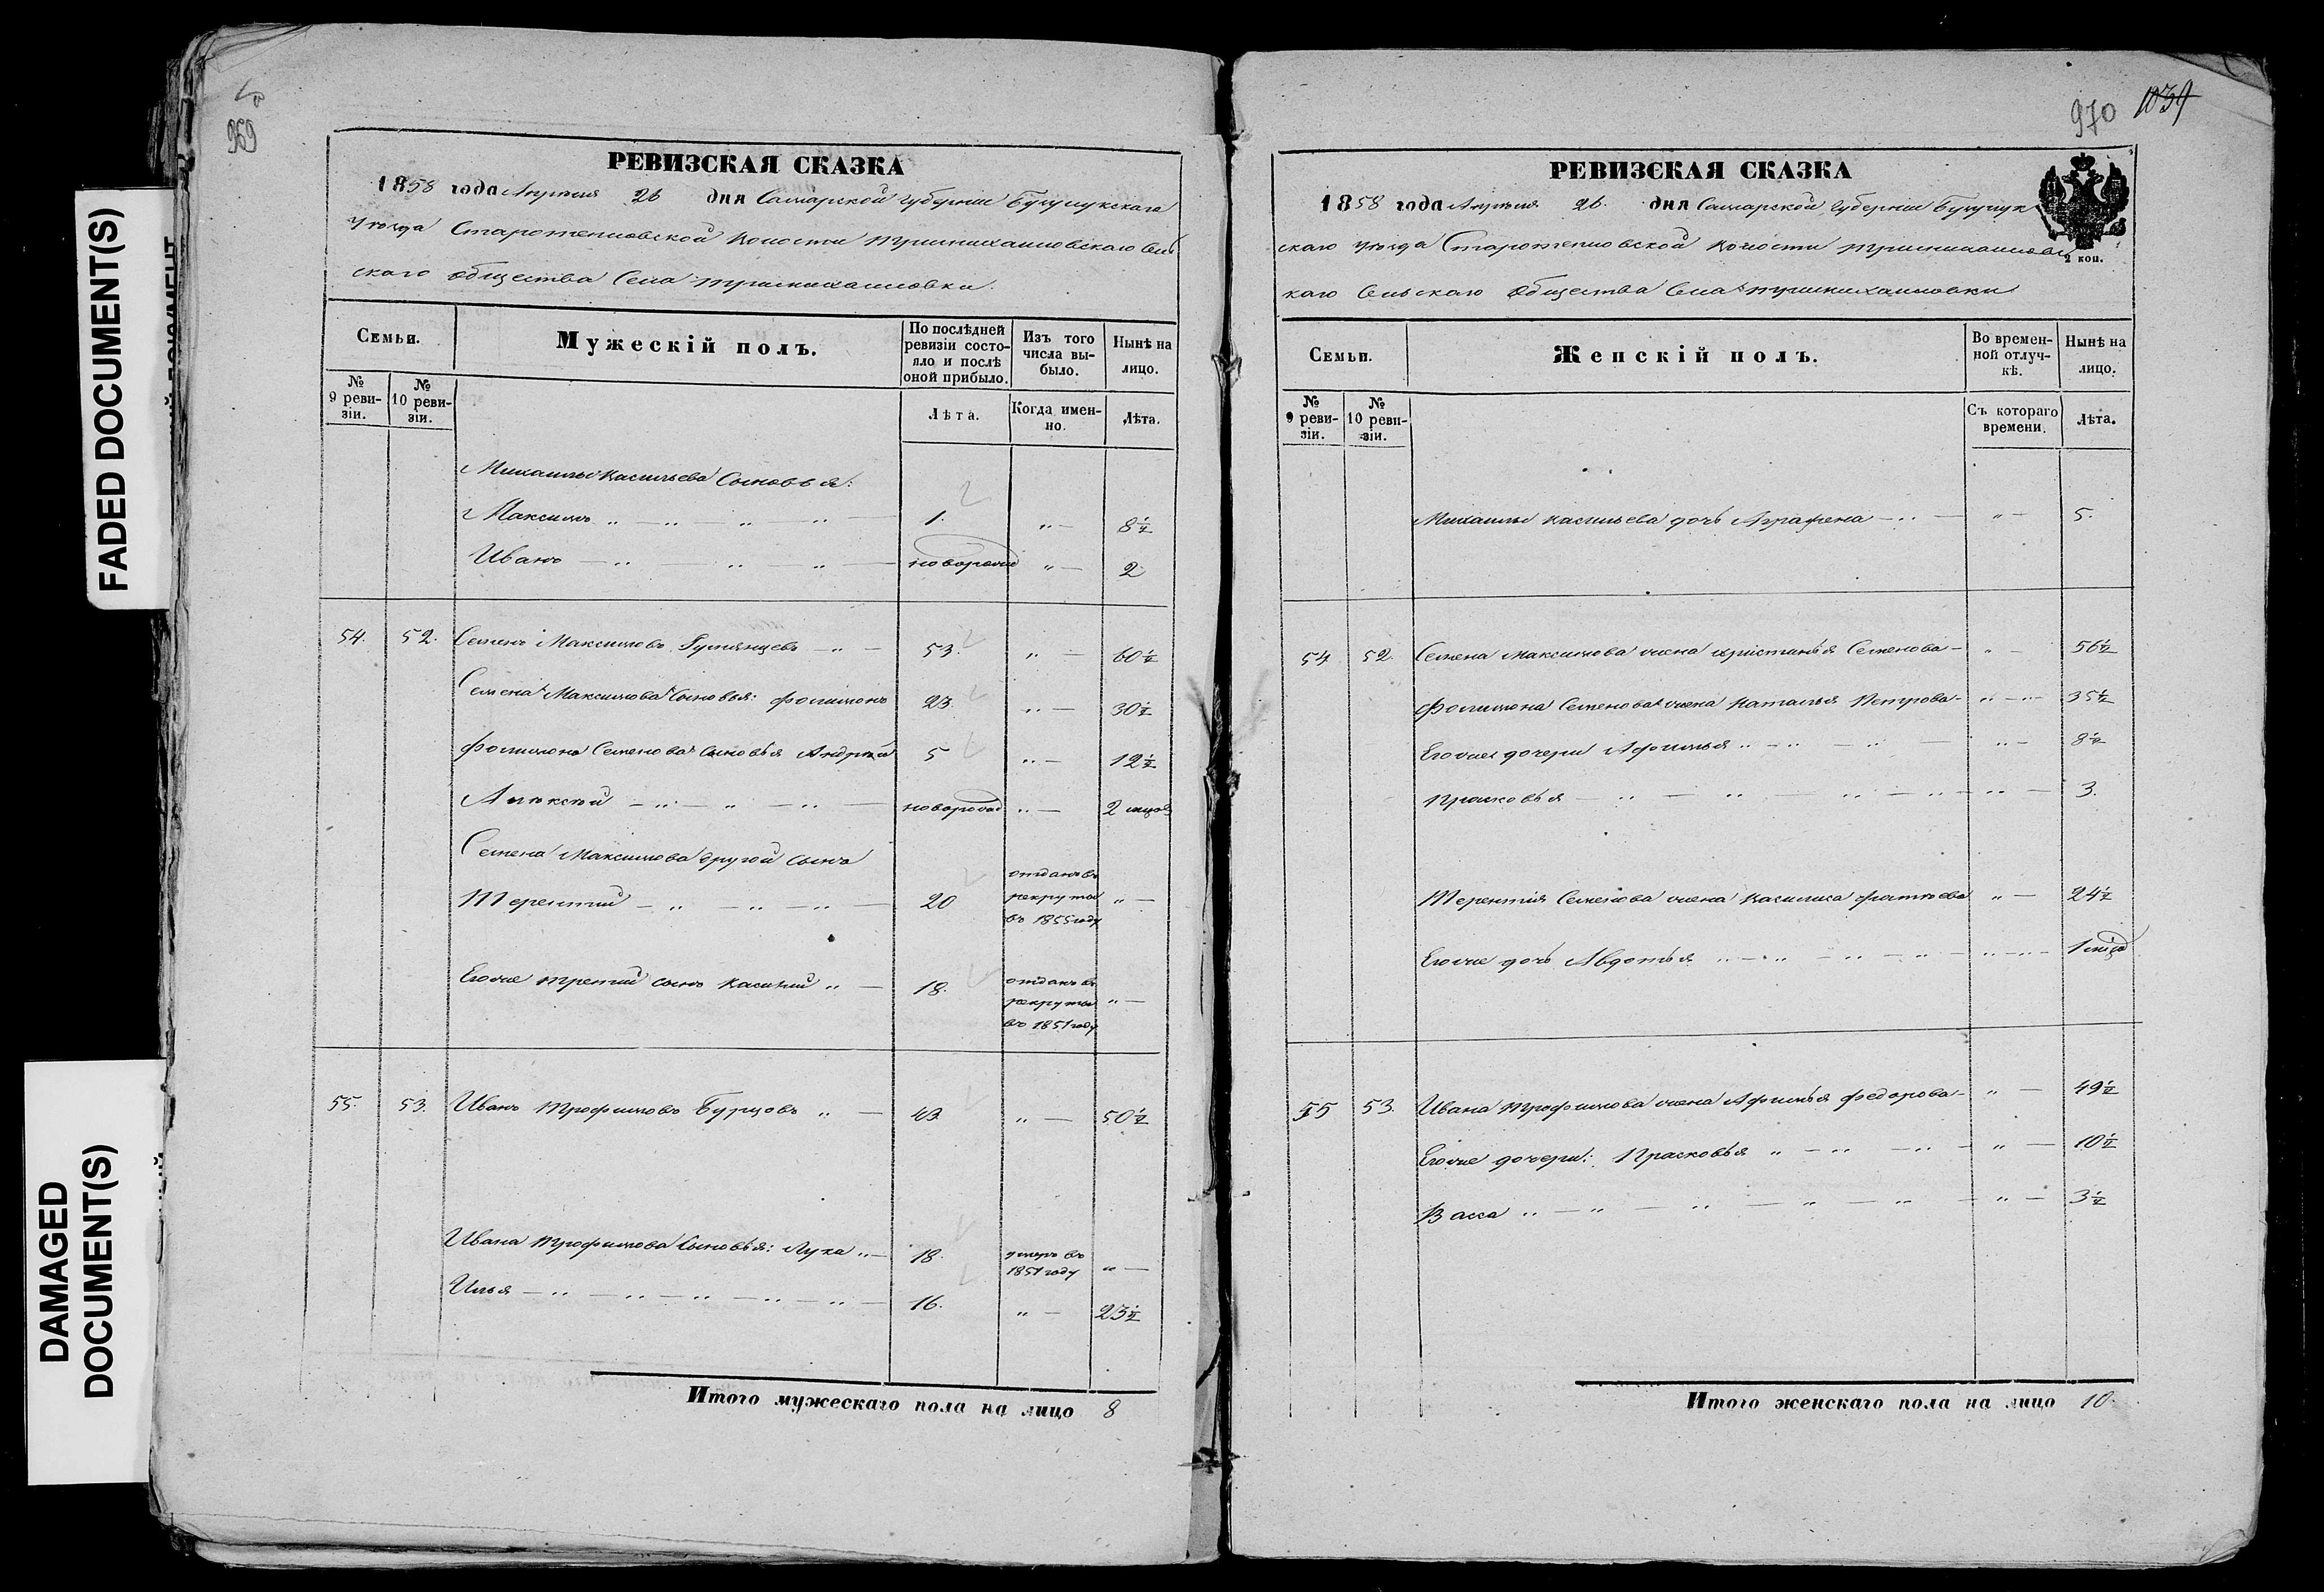 FADED DOCUMENT(S)
DAMAGED
DOCUMENT(S)
969
РЕВИЗСКАЯ СКАЗКА
1858 года Апреля 26 дня Самарской Губернии Бузулукскаго
Уѣзда Старотепловской Волости Сель
скаго Общества Села
Семьи.
Мужескій полъ.
По послѣдней
ревизіи состо-
яло и послѣ
оной прибыло.
Изъ того
числа вы-
было.
Нынѣ на
лицо.
№
9 реви-
зіи.
№
10 реви-
зіи.
Лѣта.
Когда имен-
но.
Лѣта.
Михаилы Васильева Сыновья:
Максимъ 1. 8½
Иванъ новорожд 2
54. 52. Семенъ Максимовъ Румянцевъ 53. 60½
Семена Максимова Сыновья: Филимонъ 23. 30½
Филимона Семенова сыновья Андрей 5 12½
Алексей новорожд 2 мцов
Семена Максимова другой сынъ
отданъ въ
Терентий 20 рекруты
въ 1855 году
Егоже третий сынъ Василий 18. отданъ въ
рекруты
въ 1851 году
55. 53. Иванъ Трофимовъ Бурцовъ 43 50½
Ивана Трофимова Сыновья: Лука 18. умеръ въ
1851 году
Илья 16. 23½
Итого мужескаго пола на лицо 8
970 1039
РЕВИЗСКАЯ СКАЗКА
1858 года Апреля 26. дня Самарской Губернии Бузулук
скаго Уѣзда Старотепловской Волости
2 коп.
каго Сельскаго Общества Села
Семьи.
Женскій полъ.
Во времен-
ной отлуч-
кѣ.
Нынѣ на
лицо.
№
9 реви-
зіи.
№
10 реви-
зіи.
Съ котораго
времени.
Лѣта.
Михаилы Васильева дочь Аграфена 5.
54 52. Семена Максимова жена Христинья Семенова 56½
Филимона Семенова жена Наталья Петрова 35½
Егоже дочери Афимья 8½
Прасковья 3.
Терентия Семенова жена Василиса Фатѣева 24½
Егоже дочь Авдотья 1 мцъ
55 53. Ивана Трофимова жена Афимья Федорова 49½
Егоже дочери: Прасковья 10½
Васса 3½
Итого женскаго пола на лицо 10.